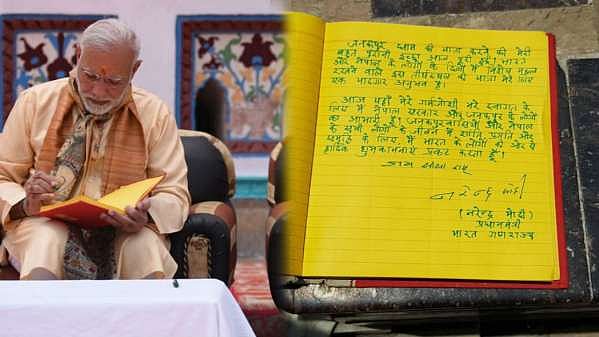 जनकपुर धाम की यात्रा करने की मेरी
बहुत पुरानी इच्छा आज पूरी हुई। भारत
और नेपाल के लोगों के दिलों में विशेष महत्व
रखने वाले इस तीर्थस्थल की यात्रा मेरे लिए
एक यादगार अनुभव है।
आज यहाँ मेरे गर्मजोशी भरे स्वागत के
लिए मैं नेपाल सरकार और जनकपुर के लोगों
का आभारी हूँ। जनकपुरवासियों और नेपाल
के सभी लोगों के जीवन में शांति, प्रगति और
समृद्धि के लिए, मैं भारत के लोगों की ओर से
हार्दिक शुभकामनाएं प्रकट करता हूँ।
जय सिया राम
नरेन्द्र मोदी
(नरेन्द्र मोदी)
प्रधानमंत्री
भारत गणराज्य